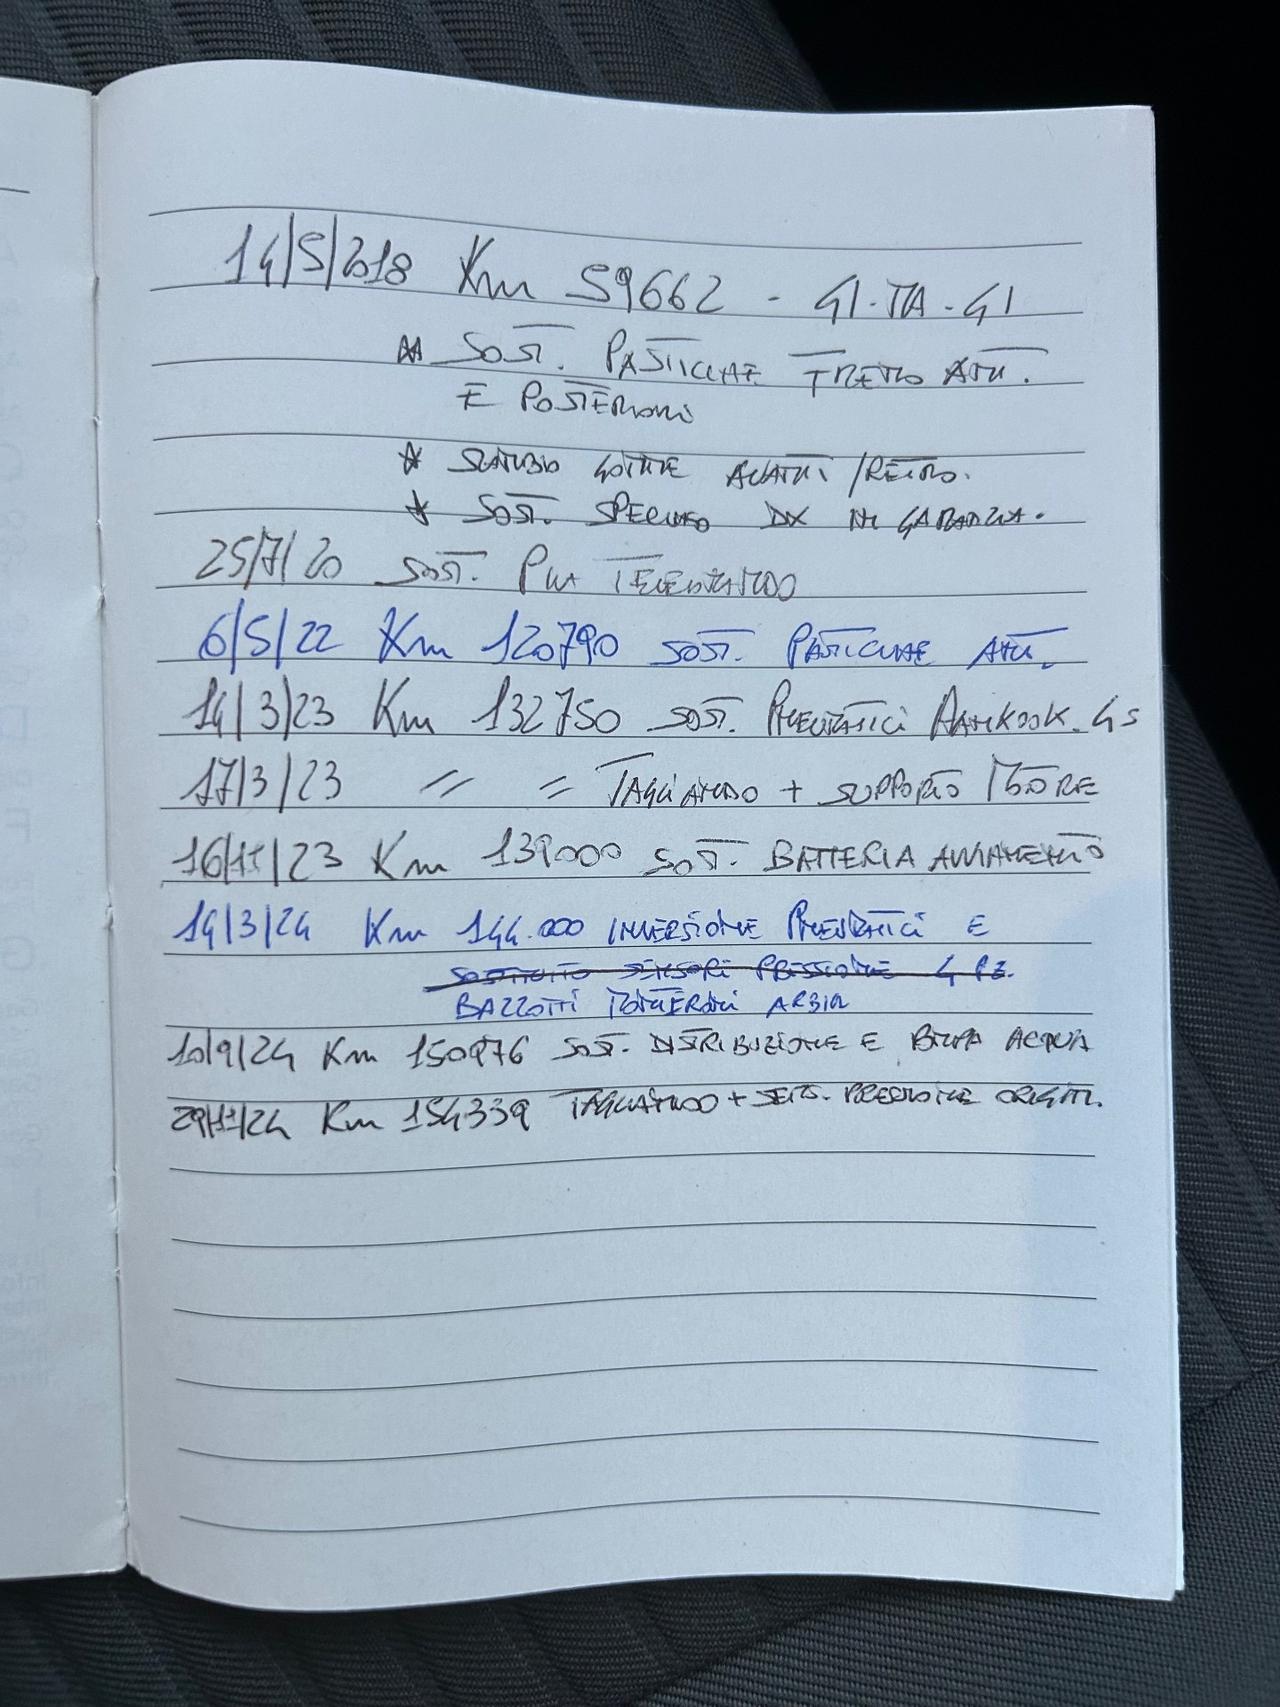 14/5/2018 Km 59662 - GI.TA.GI
* SOST. PASTICCHE FRENO ANT.
E POSTERIORI
* SCAMBIO GOMME AVANTI/RETRO.
* SOST. SPECCHIO DX IN GARANZIA.
25/7/20 SOST. PILA TELECOMANDO
6/5/22 Km 120790 SOST. PASTICCHE ANT.
14/3/23 Km 132750 SOST. PNEUMATICI HANKOOK. 4S
17/3/23 // = TAGLIANDO + SUPPORTO MOTORE
16/11/23 Km 139000 SOST. BATTERIA AVVIAMENTO
14/3/24 Km 144.000 INVERSIONE PNEUMATICI E
SOSTITUITO SENSORI PRESSIONE 4 PZ.
BAZZOTTI MONTERONI ARBIA
10/9/24 Km 150976 SOST. DISTRIBUZIONE E POMPA ACQUA
29/11/24 Km 154339 TAGLIANDO + SENS. PRESSIONE ORIGIN.